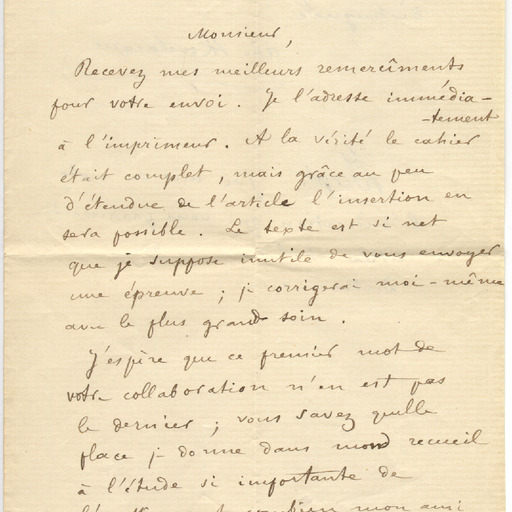 Monsieur,
Recevez mes meilleurs remercîments
pour votre envoi. Je l'adresse immédia-
-tement
à l'imprimeur. A la vérité le cahier
était complet, mais grâce au peu
d'étendue de l'article l'insertion en
sera possible. Le texte est si net
que je suppose inutile de vous envoyer
une épreuve ; je corrigerai moi-même
avec le plus grand soin.
J'espère que ce premier mot de
votre collaboration n'en est pas
le dernier ; vous savez quelle
place je donne dans mon recueil
à l'étude si importante de
mon ami